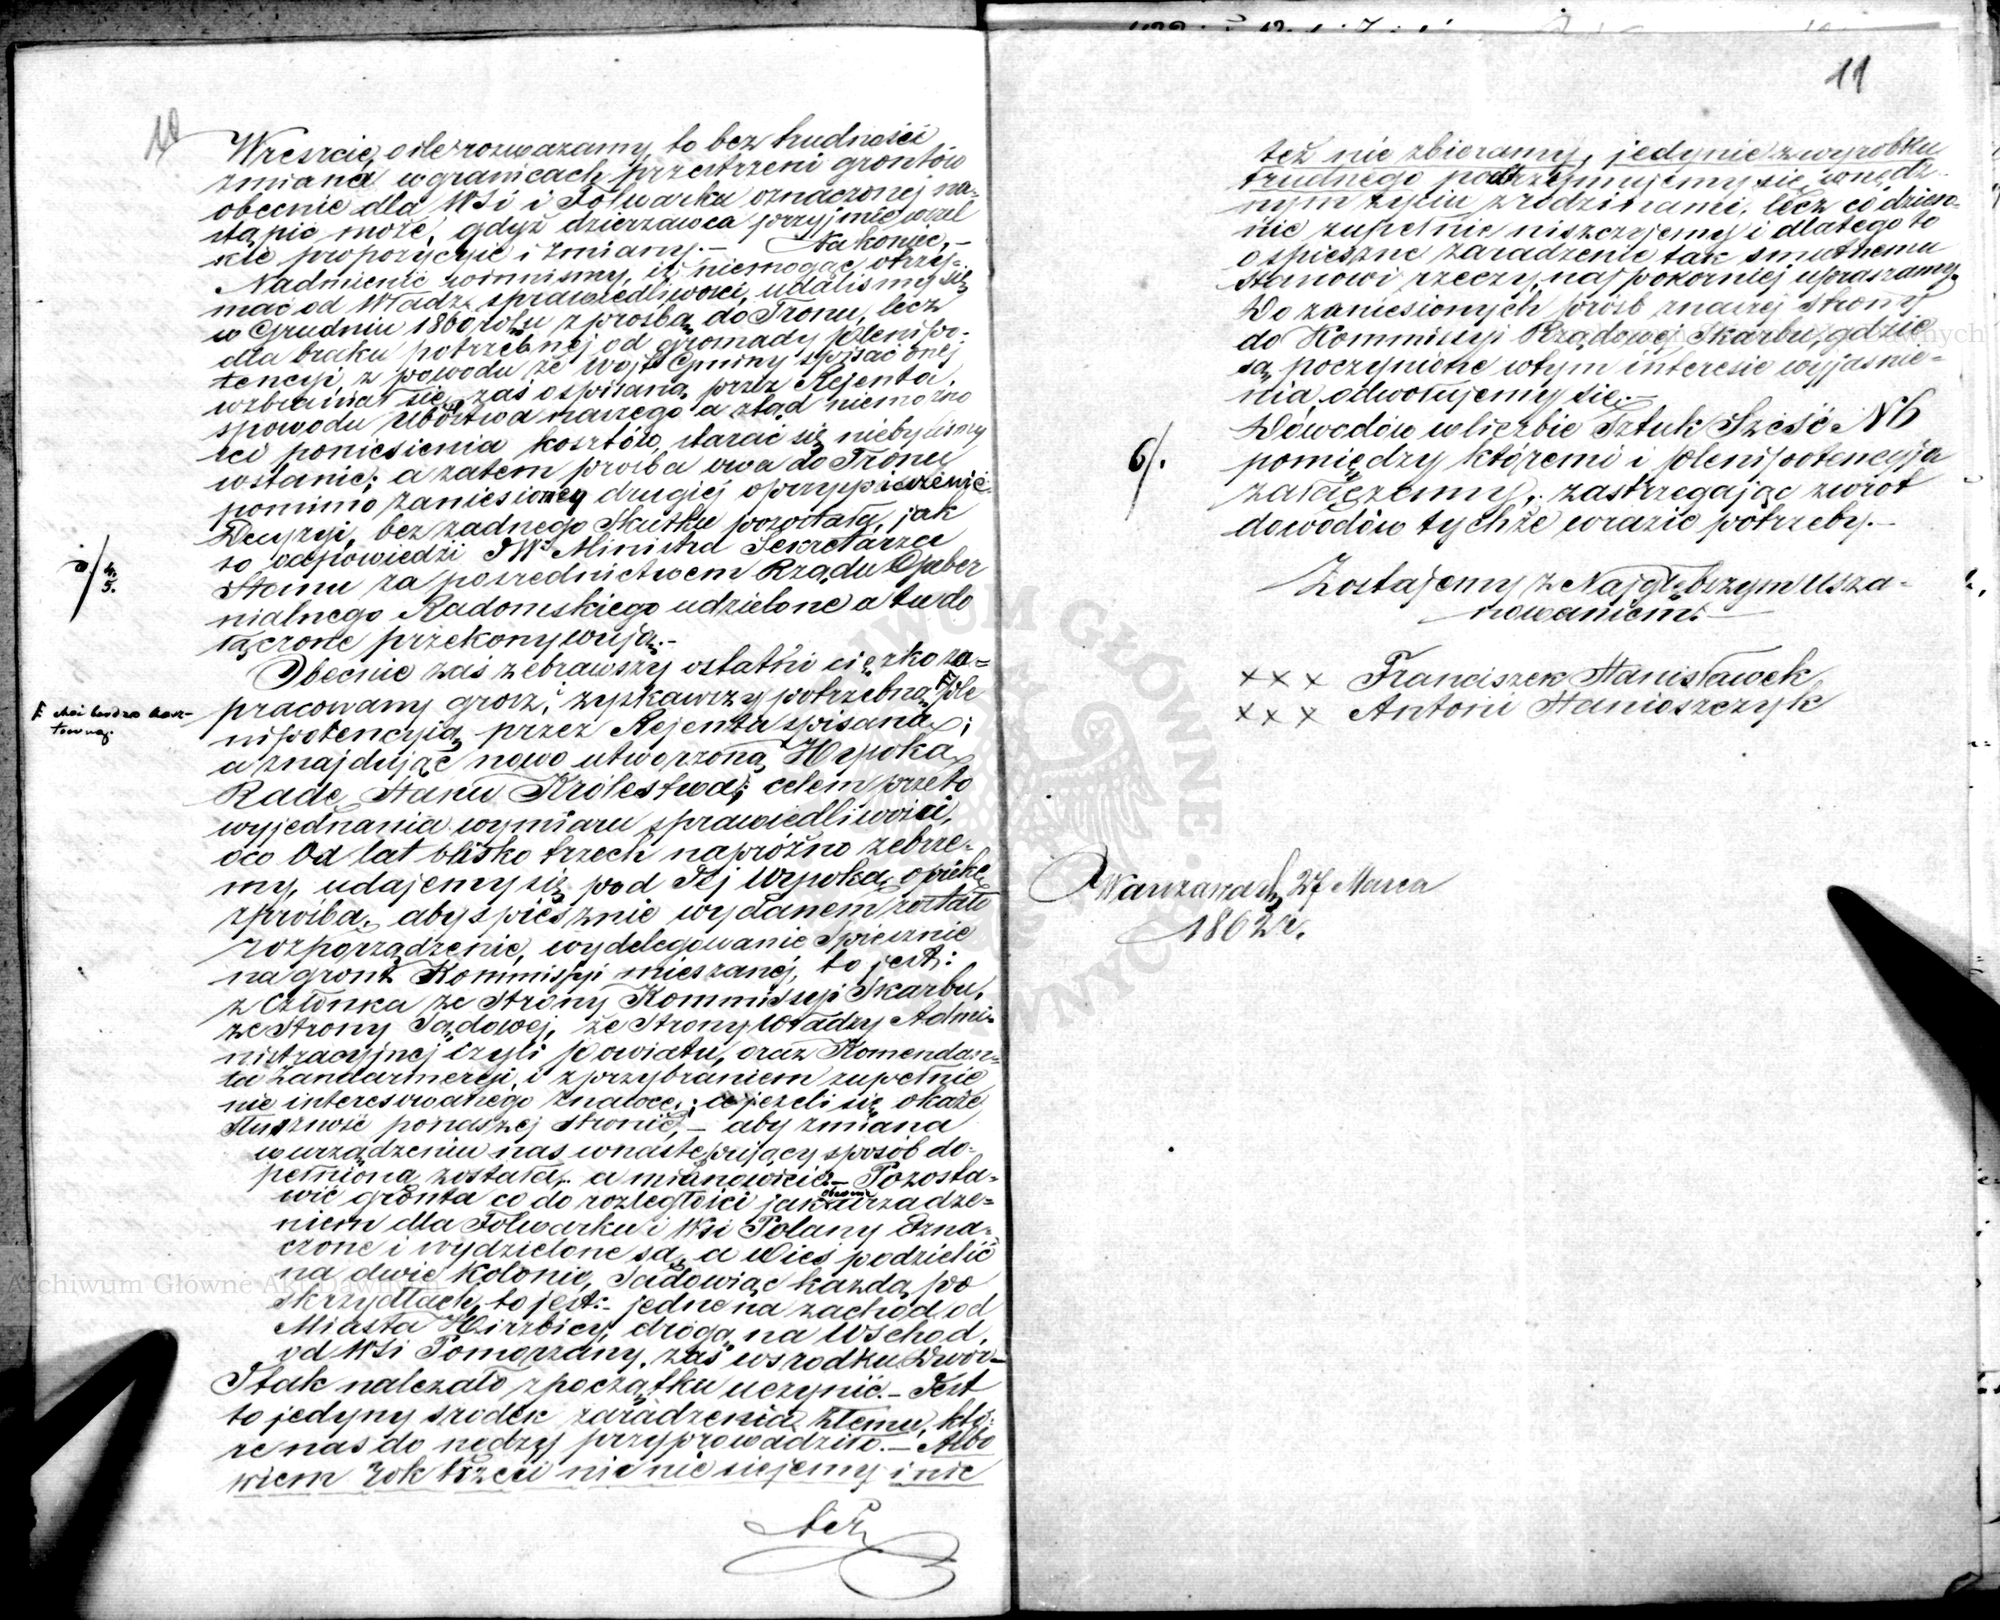 10
Wreszcie, o ile rozważamy to bez trudności
zmiana w granicach przestrzeni gruntów
obecnie dla Wsi i Folwarku oznaczonej na-
stąpić może, gdyż dzierzawca przyjmie wszel
kie propozycyie i zmiany.— Nakoniec,—
Nadmienić winniśmy, iż niemogąc otrzy-
mać od Władz sprawiedliwości, udaliśmy się
w Grudniu 1860 roku z prośbą do Tronu, lecz
dla braku potrzebnej od gromady plenipo-
tencyi, z powodu że Wójt Gminy spisać onej
wzbraniał się, zaś o spisania przez Rejenta,
spowodu ubóstwa naszego a ztąd niemożno
ści poniesienia kosztów, starać się niebyliśmy
wstanie; a zatem prośba owa do Tronu
pomimo zaniesionej drugiej o przyspieszenie
Decyzyi, bez żadnego skutku pozostała, jak
to odpowiedzi JW. Ministra Sekretarza
Stanu za pośrednictwem Rządu Guber
nialnego Radomskiego udzielone a tu do
łączone przekonywują.—
4.
5.
Obecnie zaś zebrawszy ostatni ciężko za-
pracowany grosz, zyskawszy potrzebną Ple
nipotencyią przez Rejenta spisaną;
choć bardzo kosz-
towną
a znajdując nowo utworzoną Wysoką
Radę Stanu Królestwa; celem przeto
wyjednania wymiaru sprawiedliwości,
oco od lat blisko trzech napróżno żebrze-
my, udajemy się pod Jej Wysoką opiekę
z prośbą, aby spiesznie wydanem zostało
rozporządzenie, wydelegowanie spiesznie
na gront Kommissyi mieszanej, to jest:
z Członka ze Strony Kommissyi Skarbu,
ze Strony Sądowej, ze Strony Władzy Admi-
nistracyjnej czyli powiatu, oraz Komendan-
ta Żandarmeryi, i z przybraniem zupełnie
nie interesowanego znawcę; a jeżeli się okaże
słuszność ponaszej stronie,— aby zmiana
w urządzeniu nas wnastępujący sposób do-
pełnioną została, a mianowicie— Pozosta-
wić gronta co do rozległości jak obecnem urządze-
niem dla Folwarku i Wsi Polany Ozna-
czone i wydzielone są, a Wieś podzielić
na dwie Kolonie, Sadowiąc każdą po
skrzydłach, to jest:— jedne na zachód od
Miasta Wierzbicy, drógą na Wschód,
od Wsi Pomorzany, zaś wśrodku Dwór—
I tak należało z początku uczynić.— Jest
to jedyny środek zaradzenia złemu, któ-
re nas do nędzy przyprowadziło.— Albo
wiem rok trzeci nic nie siejemy i nic
też
11
też nie zbieramy, jedynie z wyrobku
trudnego podtrzymujemy się wnędz-
nym życiu z rodzinami, lecz co dzien-
nie zupełnie niszczejemy i dlatego to
o spieszne zaradzenie tak smutnemu
stanowi rzeczy, najpokorniej upraszamy.
Do zaniesionych próśb znaszej strony
do Kommissyi Rządowej Skarbu, gdzie
są poczynione wtym interesie wyjaśnie-
nia odwołujemy się.—
6/.
Dowodów wliczbie Sztuk Sześć N6
pomiędzy któremi i plenipotencyja
załączemy, zastrzegając zwrot
dowodów tychże wrazie potrzeby.—
Zostajemy z Najgłębszym usza-
nowaniem.
xxx Franciszek Stanisławek
xxx Antoni Stanioszczyk
Warszawa d. 27 Marca
1862 r.
Archiwum Główne Akt Dawnych